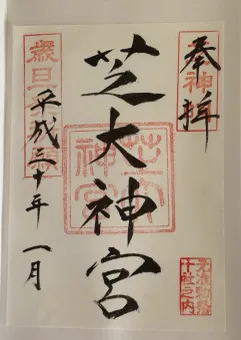 奉拝
元准勅祭
十社之内
芝大神宮
芝大
神宮
平成三十年 一月